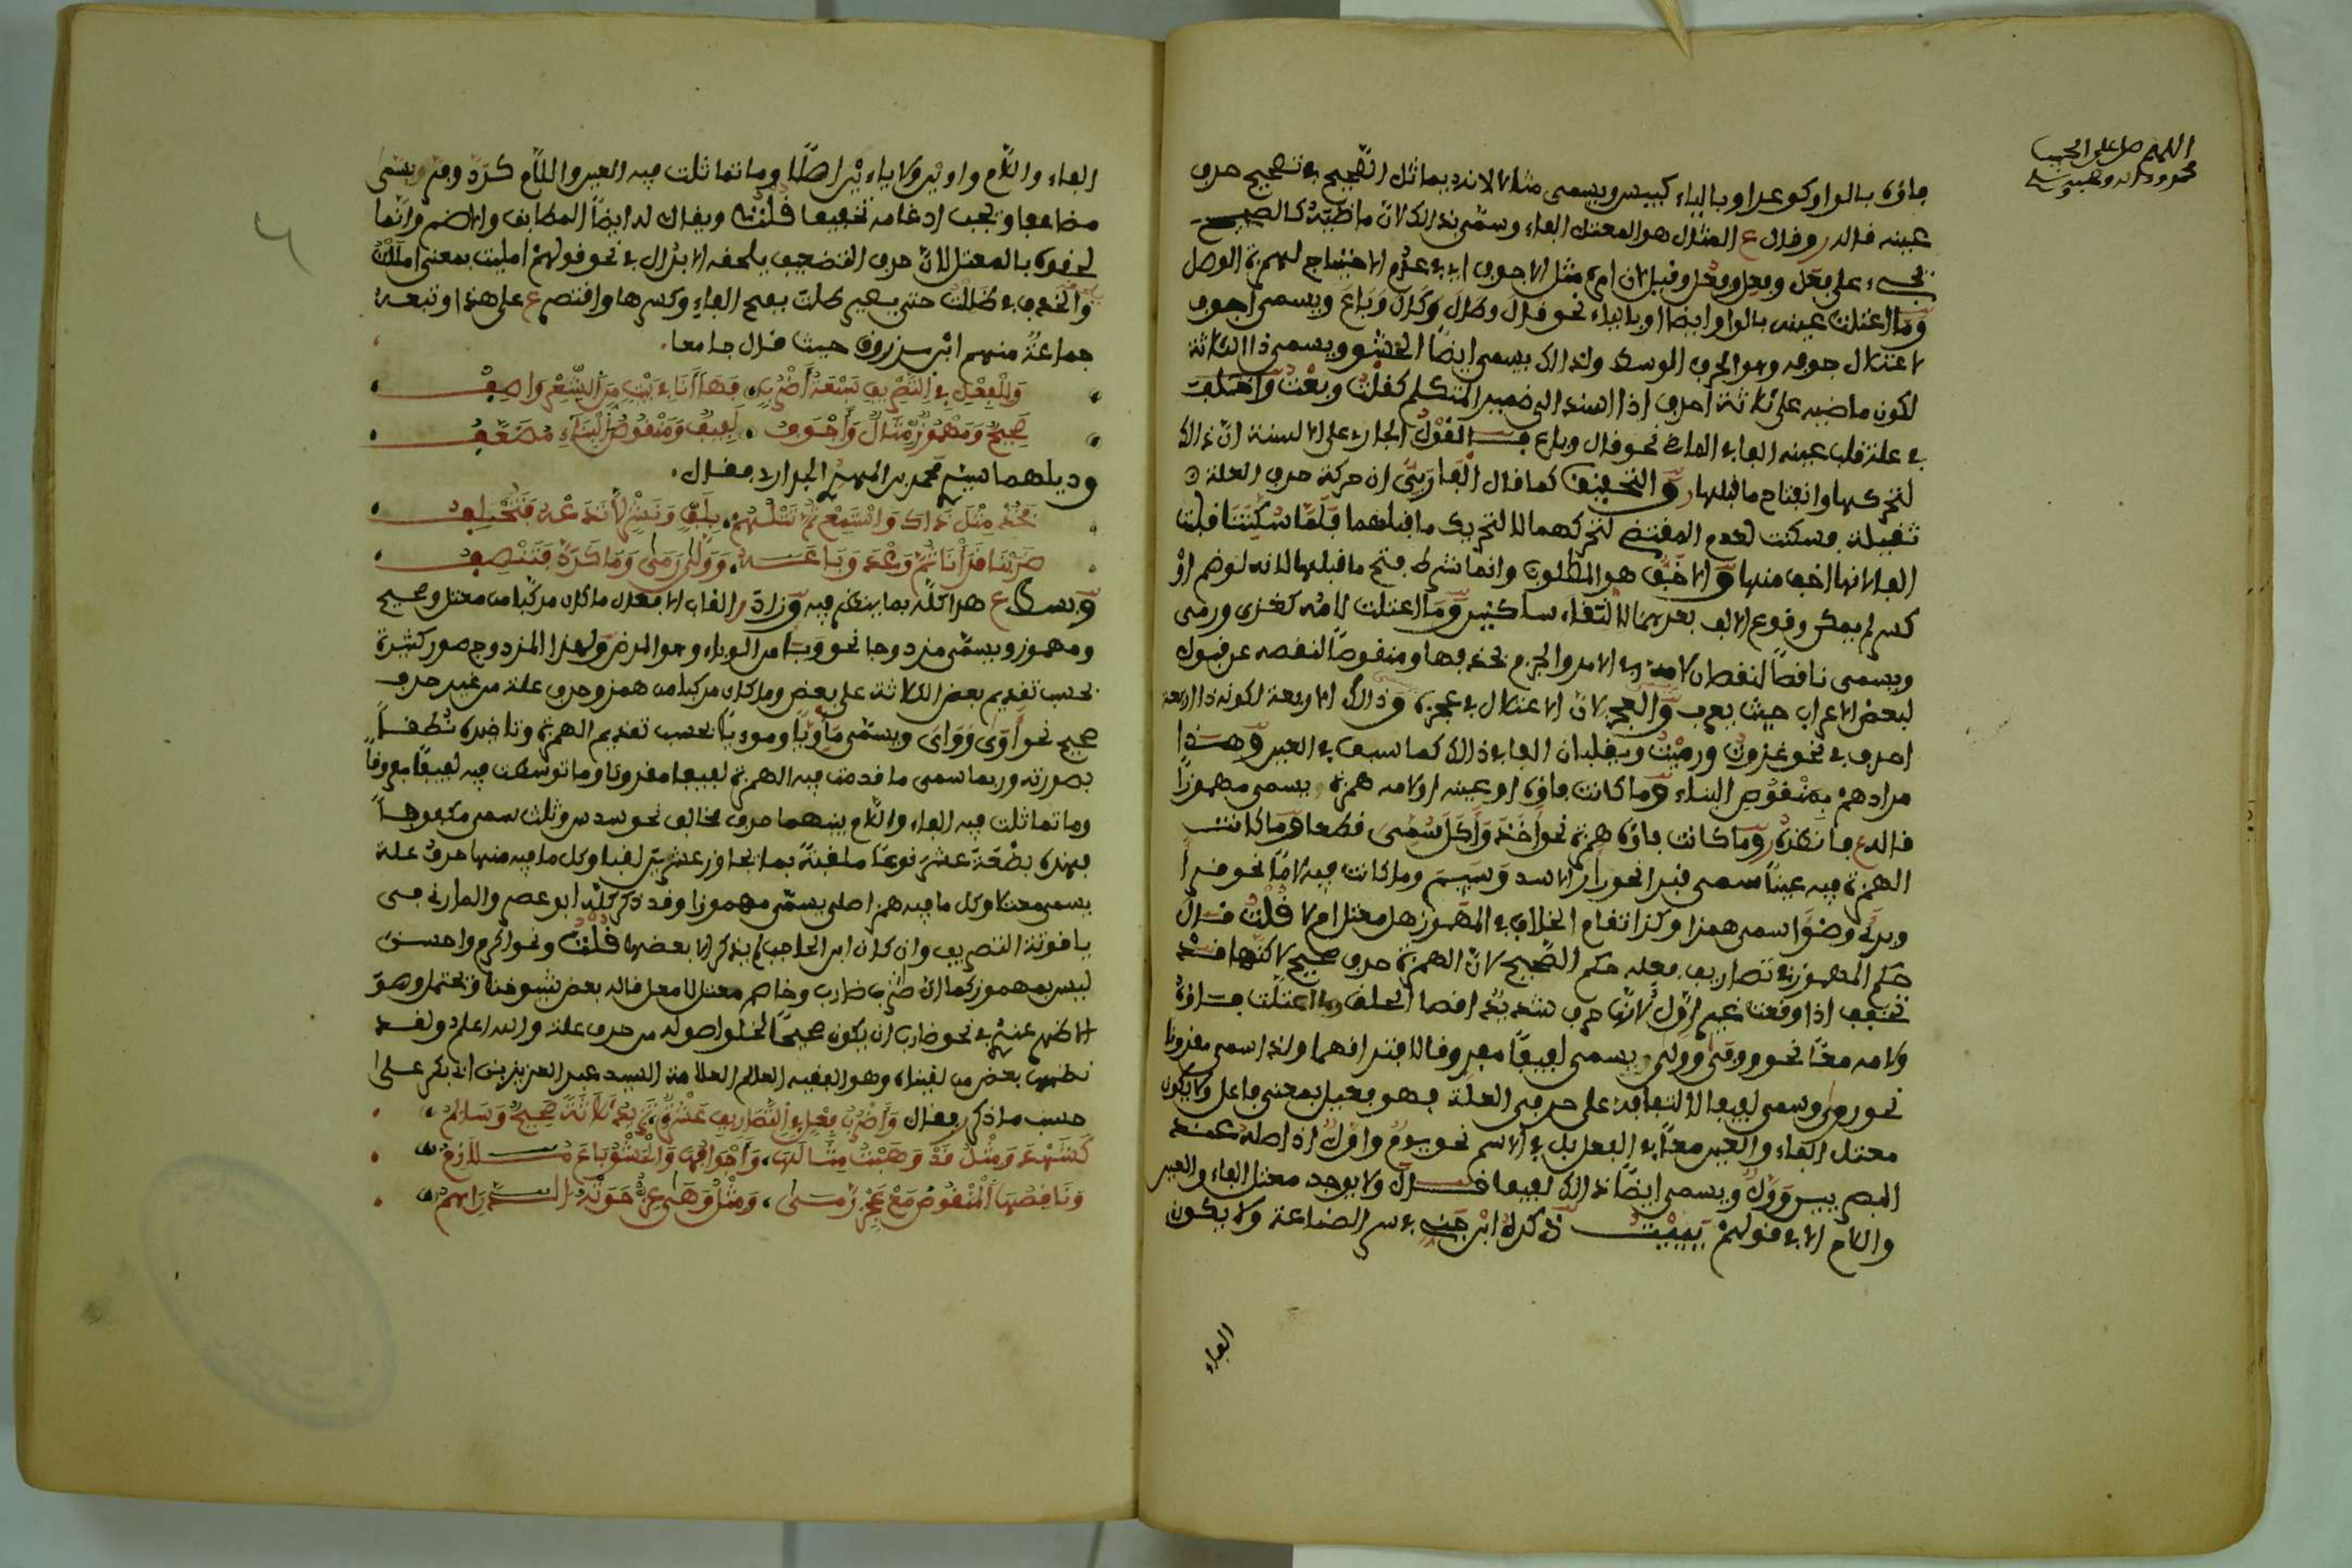 اللهم صل على الحبيب
محمد وءاله وصحبه وسلم
فاؤه بالواو كوعد او بالياء كيبس ويسمى مثالا لانه يماثل الصحيح في تصحيح حرف
عينه قاله ر وقال ع المثال هو المعتل الفاء وسمي بذالك لان ماضيه كالصحيح
يجيء على فعَل وفعِل وفعُل وقيل لان امره مثل الاجوف اي في عدم الاحتياج لهمزة الوصل
وما اعتلت عينه بالواو ايضا او بالياء نحو قال وطال وكال وباع ويسمى اجوف
لاعتلال جوفه وهو الحرف الوسط ولذالك يسمى ايضا الحشو ويسمى ذا الثلاثة
لكون ماضيه على ثلاثة احرف اذا اسند الى ضمير المتكلم كقلت وبعت واختلف
في علة قلب عينه الفا في الماضي نحو قال وباع فالقول الجاري على الالسنة ان ذالك
لتحركها وانفتاح ما قبلها والتحقيق كما قال الفارسي ان حركة حرف العلة
ثقيلة فسكنت لعدم المقتضي لتحركهما لا لتحريك ما قبلهما فلما سكنتا قلبت
الفا لانها اخف منها والاخف هو المطلوب وانما شرط فتح ما قبلها لانه لو ضم او
كسر لم يمكن وقوع الالف بعدهما لالتقاء ساكنين وما اعتلت لامه كغزى ورمى
ويسمى ناقصا لنقصان لامه في الامر والجزم بحذفها ومنقوصا لنقصه عن قبول
لبعض الاعراب حيث يعرب والعجز لان الاعتلال في عجزه وذالك الاربعة لكونه ذا اربعة
احرف في نحو غزوت ورميت ويقلبان الفا في ذالك كما سبق في العين وهذا
مرادهم بمنقوص البناء وما كانت فاؤه او عينه او لامه همزة ويسمى مهموزا
قاله ع فانظره وما كانت فاؤه همزة نحو اخذ واكل سمي قطعا وما كانت
الهمزة فيه عينا سمى نبرا نحو زار الاسد وسيم وما كانت فيه لاما نحو قرا
وبرئ وضوا سمى همزا وكذا تقام الخلاف في المهموز هل معتل ام لا قلت قال
حكم المهموز في تصاريف فعله حكم الصحيح لان الهمزة حرف صحيح لاكنها قد
تخفف اذا وقعت غير اول لانها حرف شديد من اقصا الحلف وما اعتلت فاؤه
ولامه معا نحو ووقى وولي ويسمى لفيفا مفروقا لافتراقهما ولذا سمى مقرونا
نحو روى وسمى لفيفا لالتفافه على حرفي العلة فهو فعيل بمعنى فاعل ولا يكون
معتل الفاء والعين معا في الفعل بل في الاسم نحو يوم واول اذ اصله عند
البصريين وول ويسمى ايضا ذالك لفيفا قال ولا يوجد معتل الفاء والعين
واللام الا في قولهم يييت ذكره ابن جني في سر الصناعة ولا يكون
الفاء
الفاء واللام واوين ولا ياءين اصلا وما تماثلت فيه العين واللام كرد ومر ويسمى
مضاعفا ويجب ادغامه تخفيفا قلت ويقال له ايضا المطابق والاصم وانما
لحقوه بالمعتل لان حرف التضعيف يلحقه الابدال في نحو قولهم امليت بمعنى امللت
والحذف في ظللت حتى يصير ظلت بفتح الفاء وكسرها واقتصر ع على هذا وتبعه
جماعة منهم ابن زروق حيث قال جامعا
وللفعل في التصريف تسعة اضرب فها انا في بيت من الشعر واصف
صحيح ومهموز مثال واجوف لفيف ومنقوص البناء مضعف
وذيلهما سيدي محمد بن المهدي الجراري فقال
فخذ مثل ذاك واستمع ثم نشلهم بلف ونشر لا ندعه فتختلف
ضربنا قرانا ثم وعد وباعه وولى رمى وما كرد فتنصف
وبسط ع هذا كله بما ينظم فيه وزاد القاب الافعال ما كان مركبا من معتل وصحيح
ومهموز ويسمى مزدوجا نحو وبا من الوباء وهو المرض ولهذا المزدوج صور كثيرة
بحسب تقديم بعض الثلاثة على بعض وما كان مركبا من همز وحرف علة من غير حرف
صحيح نحو اوى وواى ويسمى ماويا ومويا بحسب تقديم الهمزة وتاخيره نطقا
بصورته وربما سمى ما قدمت فيه الهمزة لفيفا مقرونا وما توسطت فيه لفيفا مفروقا
وما تماثلت فيه الفاء واللام بينهما حرف مخالف نحو سدس وثلث سمى مكعوفا
فهذه بضعة عشر نوعا ملقبة بما يجاوز عشرين لقبا وكل ما فيه منها حرف علة
يسمى معتلا وكل ما فيه همز اصلي يسمى مهموزا وقد ذكر كله ابو عصر والمارني في
ياقوتة التصريف وان كان ابن الحاجب لم يذكر الا بعضها قلت ونحو اكرم واحسن
ليس بمهموز كما ان ضرب ضارب وخاصم معتل لا معل قاله بعض شيوخنا ويحتمل وهو
الاظهر عنده في نحو ضارب ان يكون صحيحا لخلو اصوله من حرف علة والله اعلم ولقد
نظمها بعض من لقيناه وهو الفقيه العالم العلامة السيد عبد العزيز بن ابي بكر على
حسب ما ذكر فقال واضرب فعل في التصاريف عشرة تزيد ثلاثة صحيح وسالم
كشهد ومثل قد وهبت مثالها واجوافها والحشو باع ملازم
وناقصها المنقوص مع عجز رمى ومثل وهى عزة حوته الدراهم